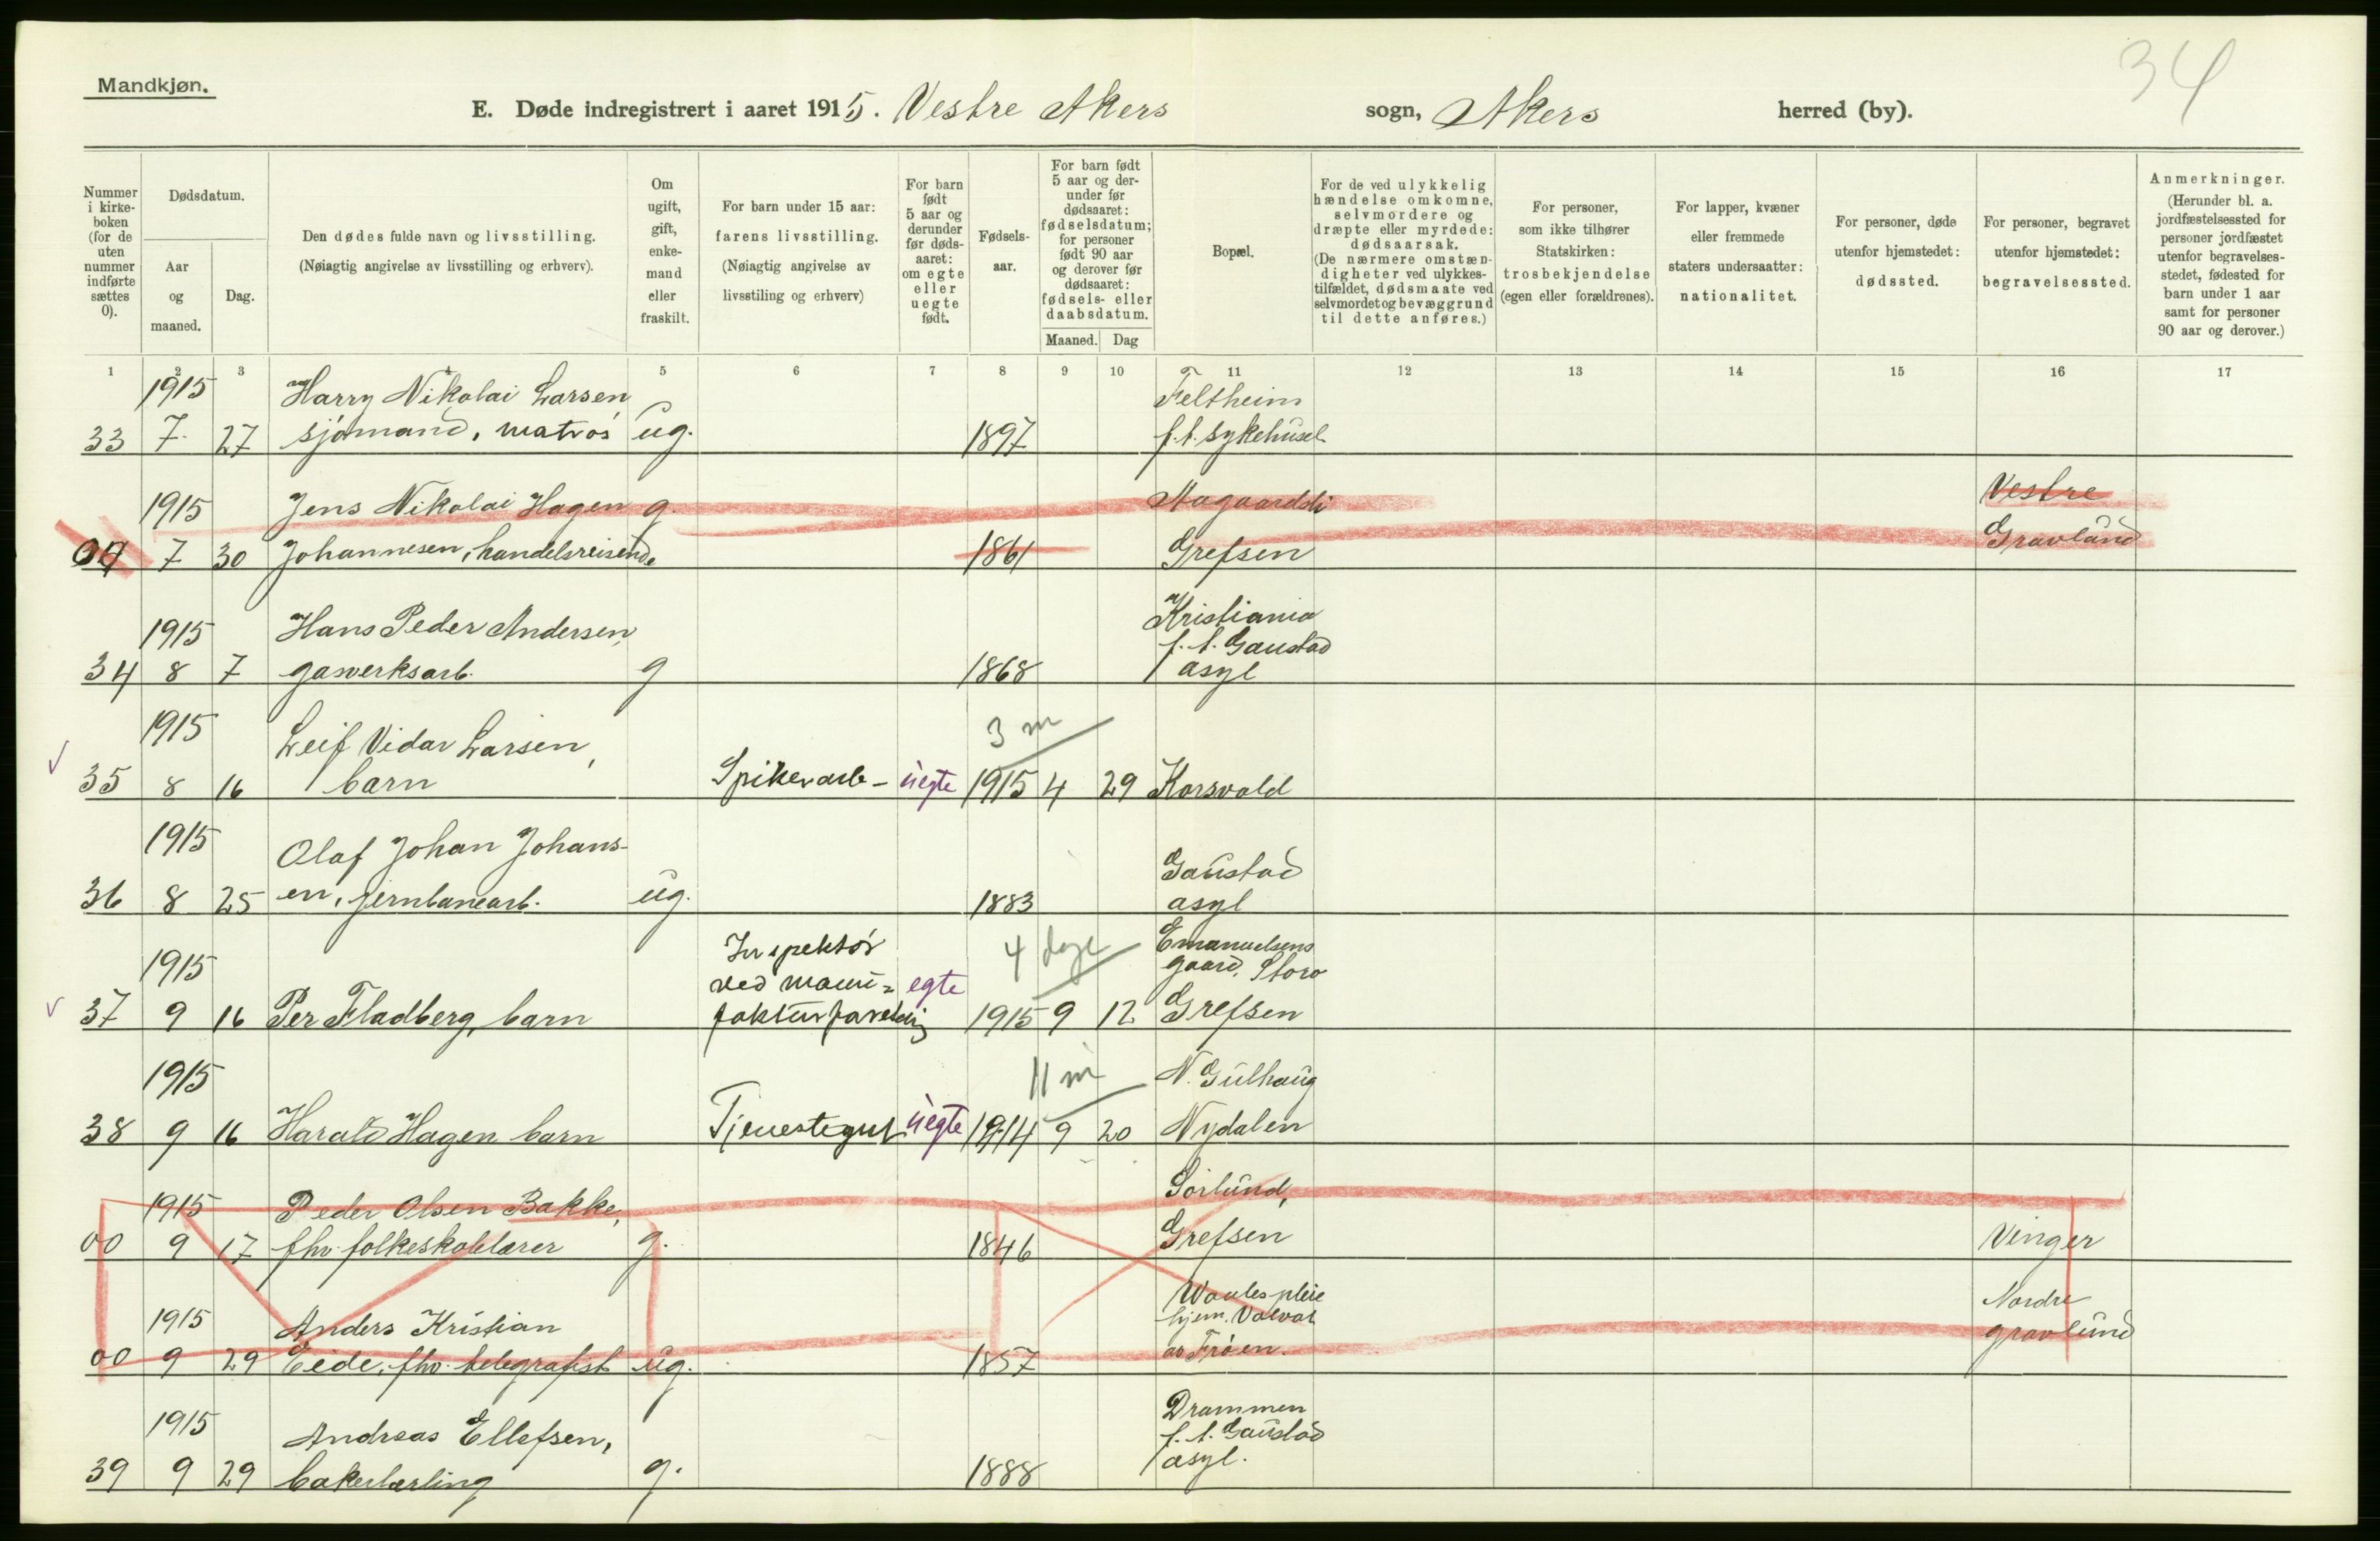 34
Mandkjøn.
E. Døde indregistrert i aaret 1915. Vestre Akers sogn, Akers herred (by).
Nummer i kirke-boken (for de uten nummer indførte sættes 0).
Dødsdatum.
Aar og maaned.
Dag.
Den dødes fulde navn og livsstilling.
(Nøiagtig angivelse av livsstilling og erhverv).
Om ugift, gift, enke-mand eller fraskilt.
For barn under 15 aar: farens livsstilling.
(Nøiagtig angivelse av livsstiling og erhverv)
For barn født 5 aar og derunder før døds-aaret: om egte eller uegte født.
Fødsels-aar.
For barn født 5 aar og der-under før dødsaaret: fødselsdatum; for personer født 90 aar og derover før dødsaaret: fødsels- eller daabsdatum.
Maaned. Dag
Bopæl.
For de ved ulykkelig hændelse omkomne, selvmordere og dræpte eller myrdede: dødsaarsak.
(De nærmere omstæn-digheter ved ulykkes-tilfældet, dødsmaate ved selvmordet og bevæggrund til dette anføres.)
For personer, som ikke tilhører Statskirken: trosbekjendelse (egen eller forældrenes).
For lapper, kvæner eller fremmede staters undersaatter: nationalitet.
For personer, døde utenfor hjemstedet: dødssted.
For personer, begravet utenfor hjemstedet: begravelsessted.
Anmerkninger.
(Herunder bl. a. jordfæstelsessted for personer jordfæstet utenfor begravelses-stedet, fødested for barn under 1 aar samt for personer 90 aar og derover.)
1 2 3 4 5 6 7 8 9 10 11 12 13 14 15 16 17
1915 Harry Nikolai Larsen Feltheim
33 7 27 sjømand, matros ug. 1897 f. t. sykehuset
1915 Jens Nikolai Hagen g. Aagaardsli Vestre
7 30 Johannesen, handelsreisende 1861 Grefsen Gravlund
1915 Hans Peder Andersen, Kristiania
f. t. Gaustad
34 8 7 gasverksarb. g 1868 asyl
1915 Leif Vidar Larsen, 3 m
35 8 16 barn Spikerarb- uegte 1915 4 29 Korsvold
1915 Olaf Johan Johans- Gaustad
36 8 25 en, jernbanearb. ug. 1883 asyl
Inspektør 4 dage Emanuelsens
1915 ved manu= egte gaard, Storo
37 9 16 Per Fladberg, barn 1915 9 12 Grefsen
1915 11 m N. Gullhaug
38 9 16 Harald Hagen barn Tjenestegut uegte 1914 9 20 Nydalen
1915 Peder Olsen Bakke, Sørlund,
00 9 17 fhv. folkeskolelærer g. 1846 Grefsen Vinger
hjem. Nordre
1915 Anders Kristian gravlund
00 9 29 Eide, fhv. telegrafist ug. 1857 Frøen.
Drammen
1915 Andreas Ellefsen, f. t. Gaustad
39 9 29 bakerlærling g. 1888 asyl.